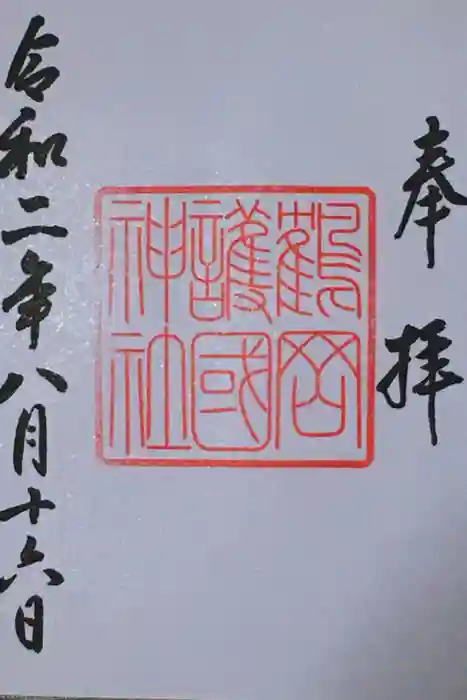 奉拝
鶴岡
護國
神社
令和二年八月十六日